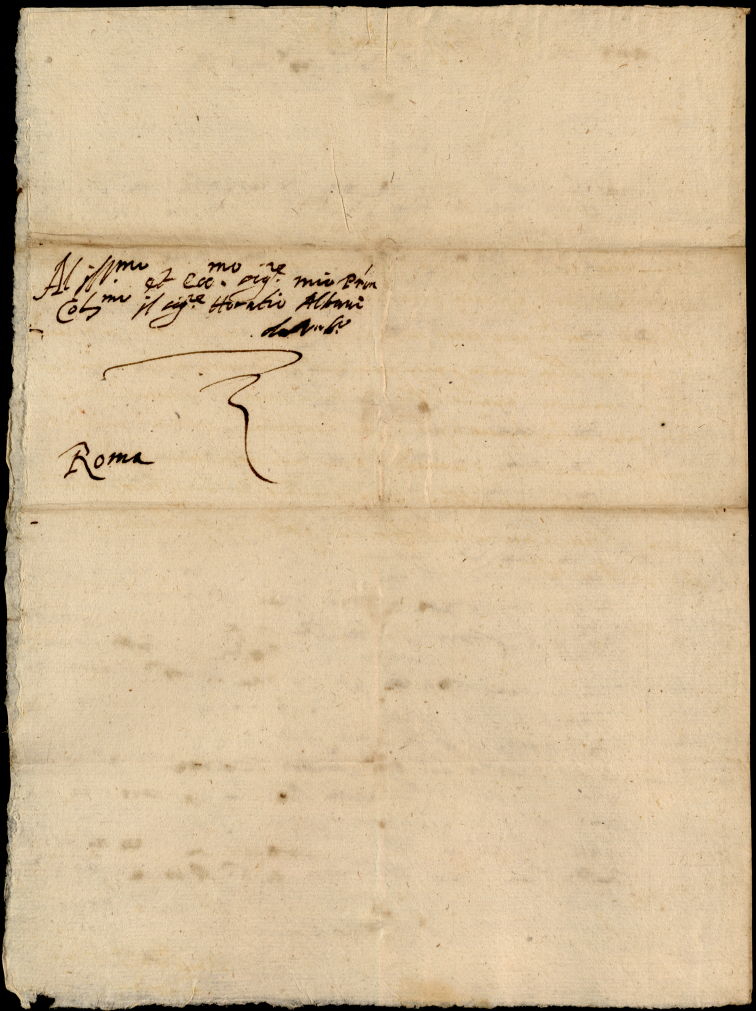 Al Ill.mo et Ecc.mo sig.re mio Prõn
Col.mo il sig.re Horatio Albani
Roma